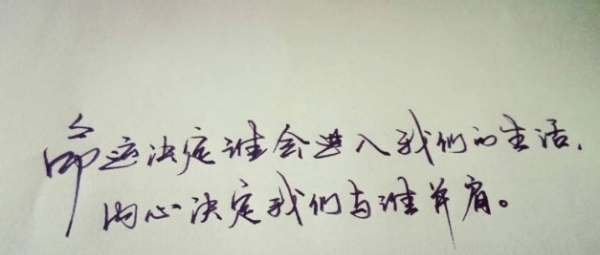 命运决定谁会进入我们的生活,
内心决定我们与谁并肩。